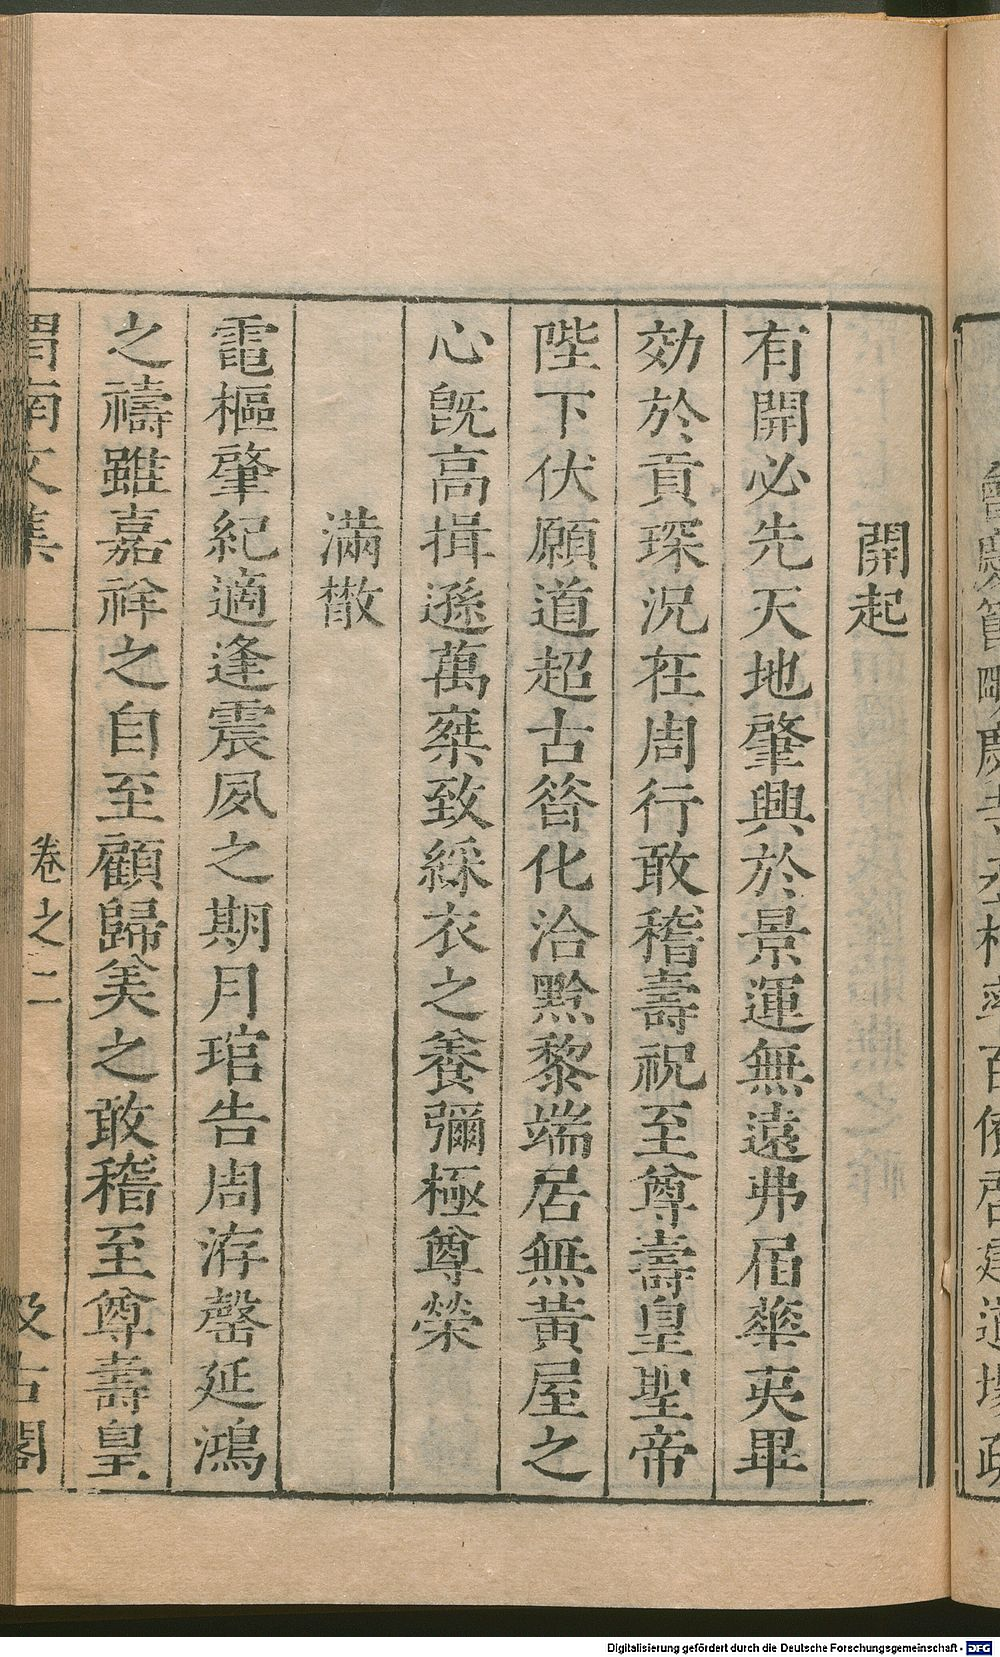 開起
有開必先天地肇興於景運無遠弗屆華夷畢
効於貢琛況在周行敢稽壽祝至尊壽皇聖帝
陛下伏願道超古昝化洽黔黎端居無黃屋之
心旣高揖遜萬乘致綵衣之養彌極尊榮
滿散
電樞肇紀適逢震夙之期月琯告周洊罄延鴻
之禱雖嘉祥之自至顧歸美之敢稽至尊壽皇
渭南文集 卷之二 汲古閣
Digitalisierung gefördert durch die Deutsche Forschungsgemeinschaft - DFG